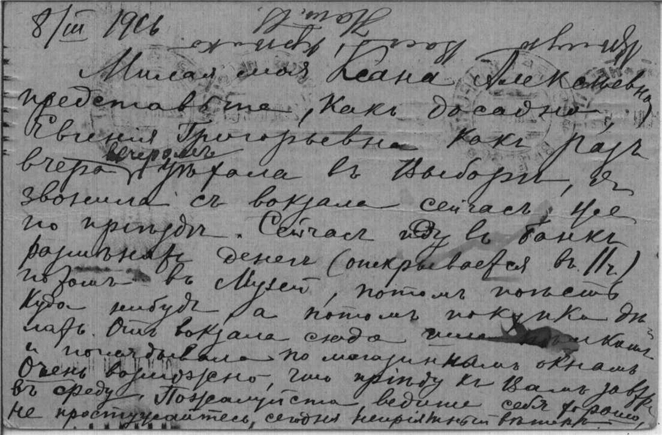 8/III 1916
Милая моя Ксана Алексѣевна,
представьте, какъ досадно,
Евгенія Григорьевна какъ разъ
вчера вечеромъ уѣхала въ Выборгъ, я
звонила съ вокзала сейчасъ, уже
по пріѣздѣ. Сейчасъ иду въ банкъ
размѣнять денегъ (открывается въ 11 ч.)
потомъ въ Музей, потомъ поѣсть
куда нибудь, а потомъ покупки дѣ
лать. Отъ вокзала сюда шла пѣшкомъ
и поглядывала по магазиннымъ окнамъ
Очень возможно, что пріѣду къ Вамъ завтра,
въ среду. Пожалуйста ведите себя хорошо,
не простужайтесь, сегодня непріятный вѣтеръ.